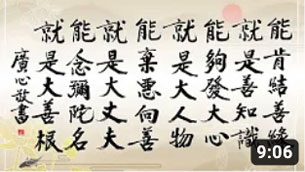 能肯結善緣
就是善知識
能夠發大心
就是大人物
能棄惡向善
就是大丈夫
能念彌陀名
就是大善根
廣心敬書
9:06